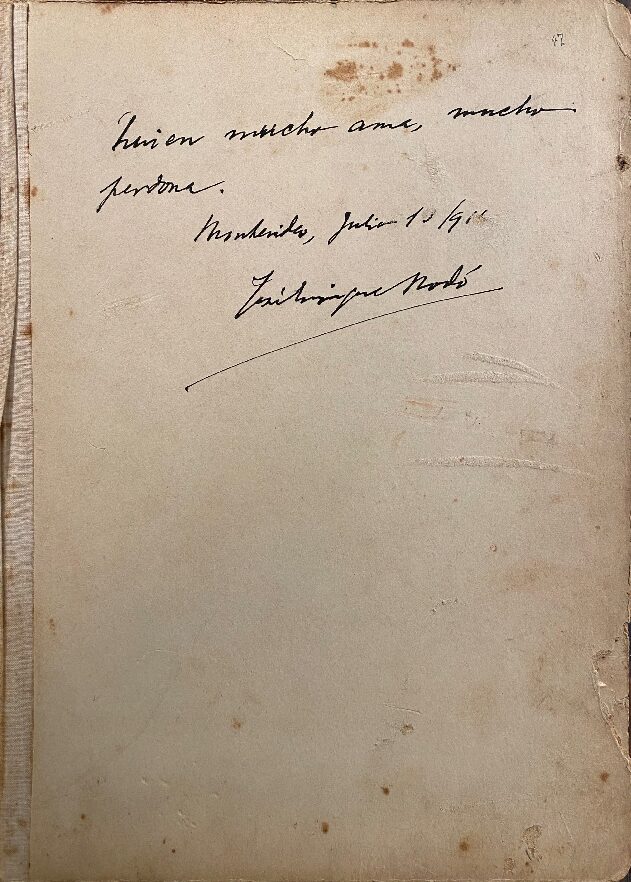 47
Quien mucho ama, mucho
perdona.
Montevideo, Julio
José Enrique Rodó